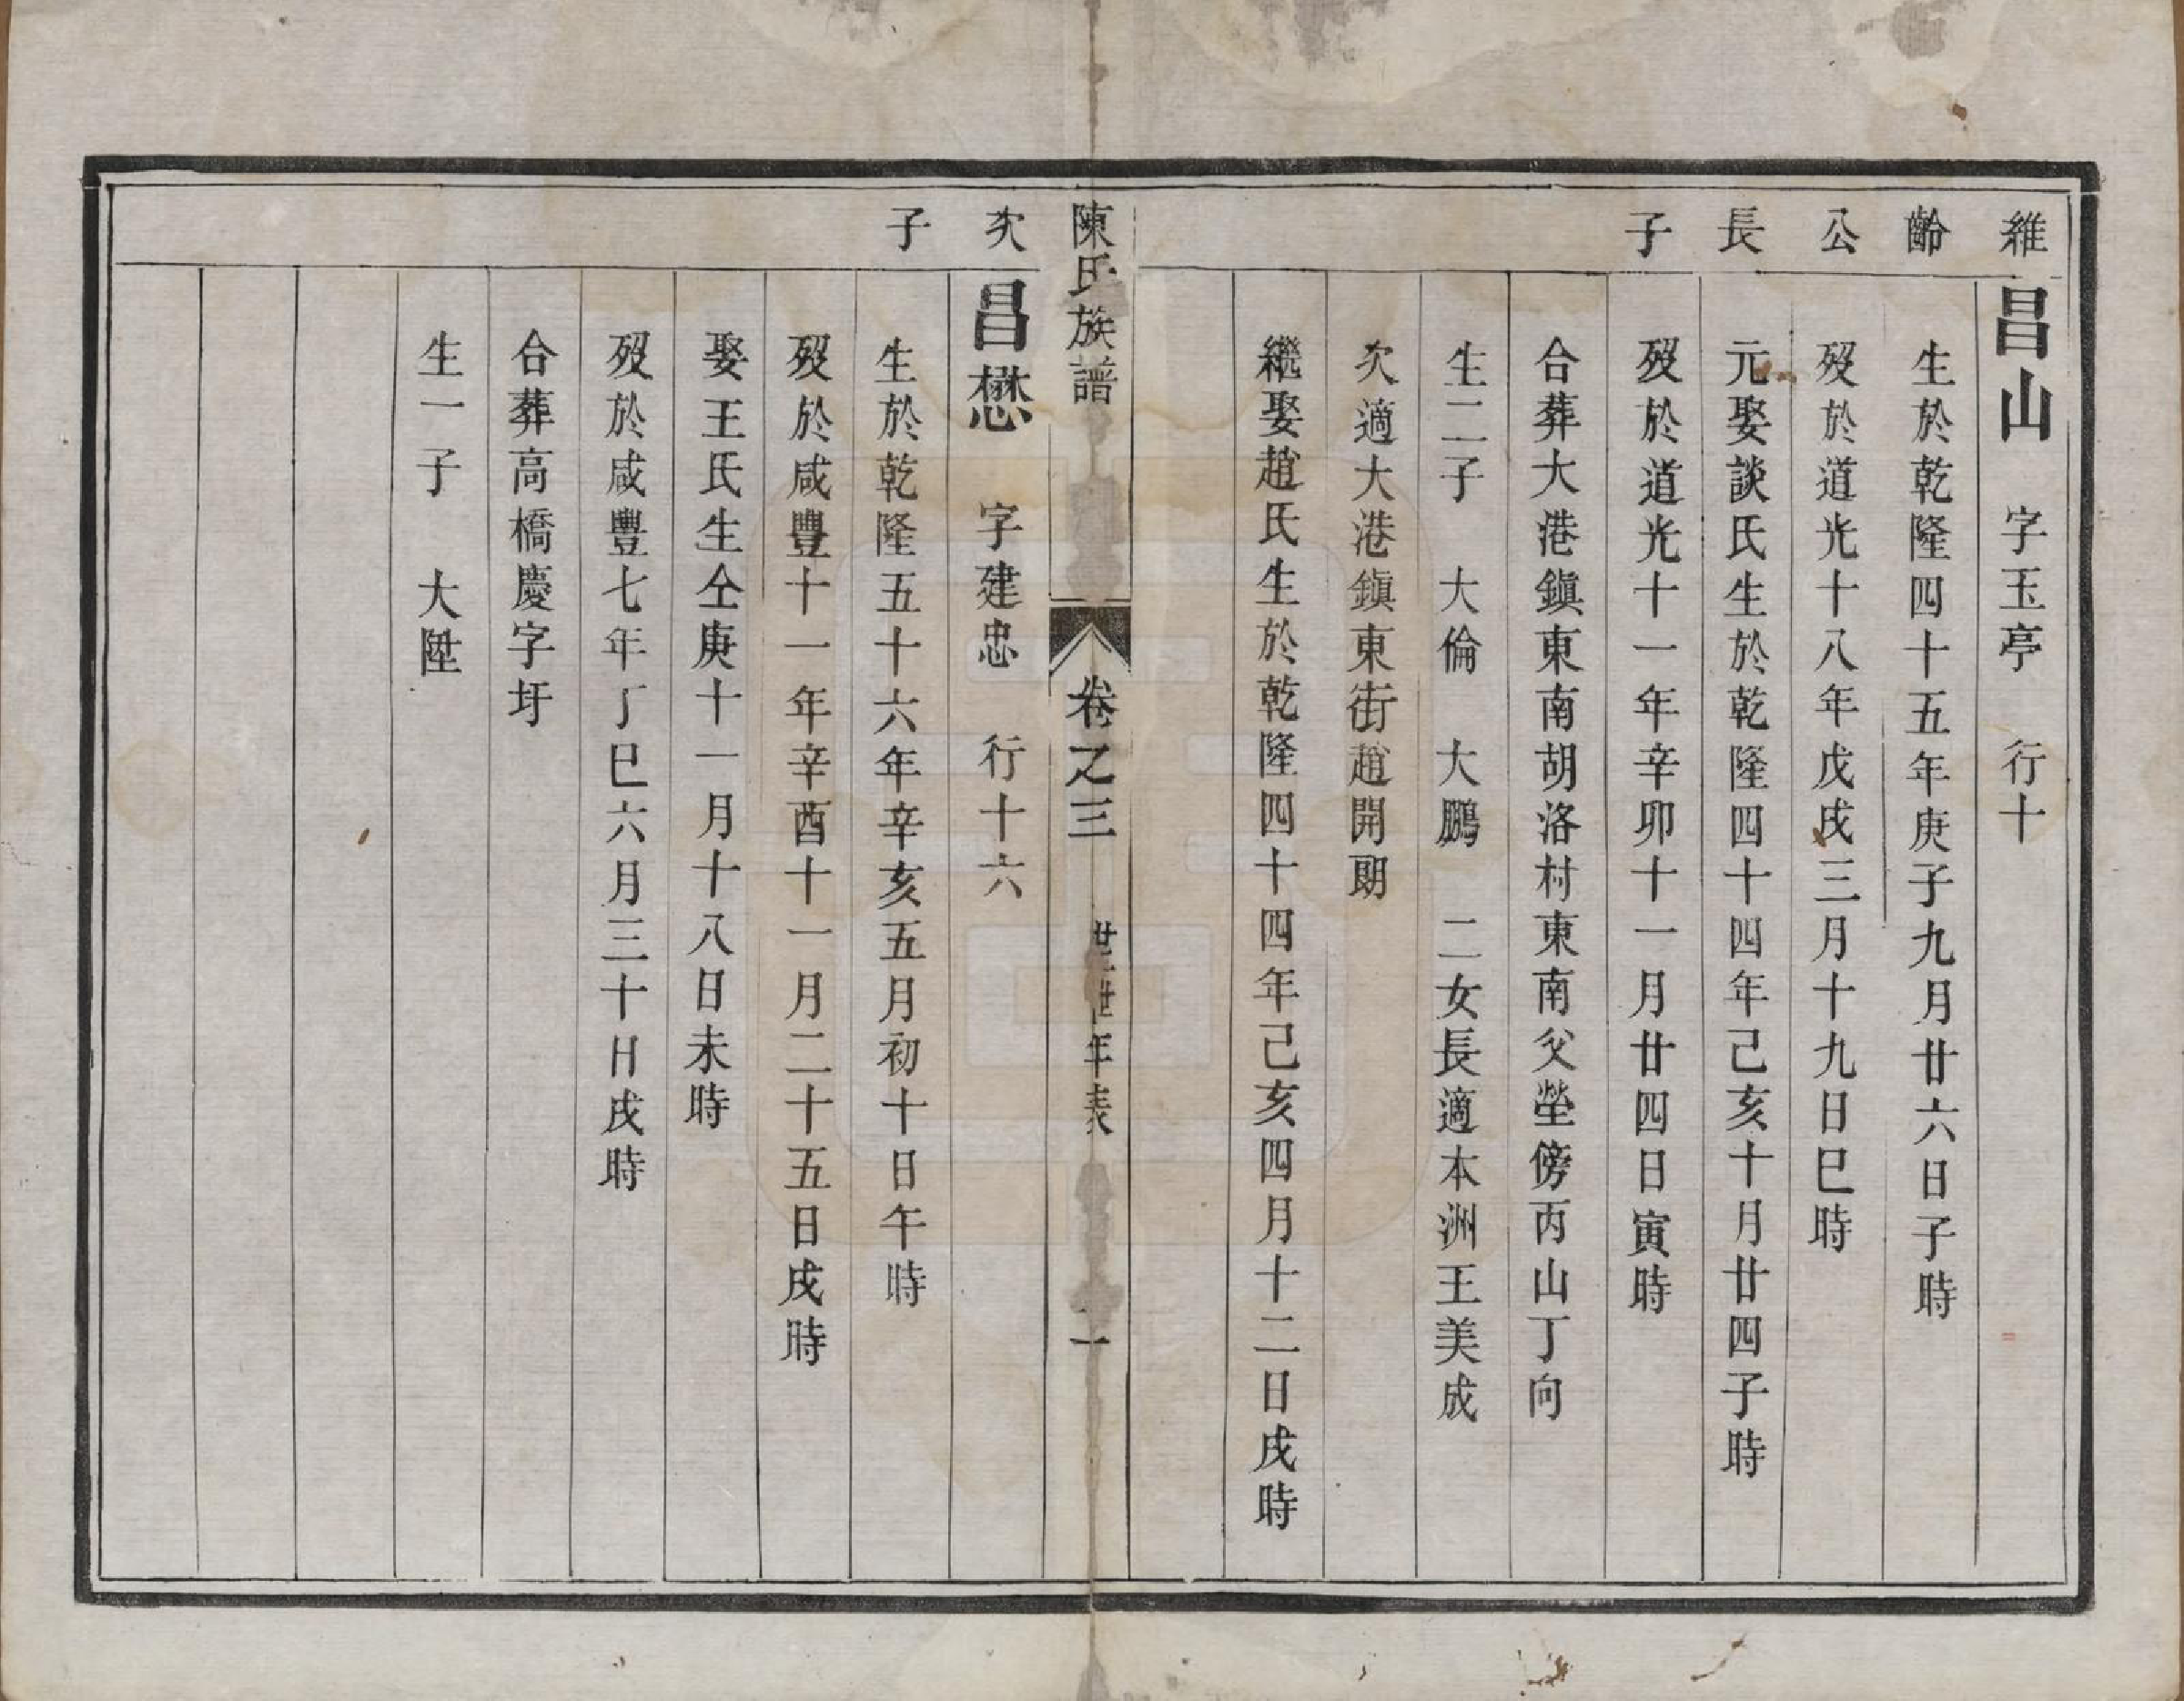 維齡公長子
昌山 字玉亭 行十
生於乾隆四十五年庚子九月廿六日子時
歿於道光十八年戊戌三月十九日巳時
元娶談氏生於乾隆四十四年己亥十月廿四子時
歿於道光十一年辛卯十一月廿四日寅時
合葬大港鎭東南胡洛村東南父塋傍丙山丁向
生二子 大倫 大鵬 二女長適本洲王美成
次適大港鎭東街趙開朗
繼娶趙氏生於乾隆四十四年己亥四月十二日戌時
陳氏族譜 卷之三 世世年表 一
次子
昌懋 字建忠 行十六
生於乾隆五十六年辛亥五月初十日午時
歿於咸豐十一年辛酉十一月二十五日戌時
娶王氏生仝庚十一月十八日未時
歿於咸豐七年丁巳六月三十日戌時
合葬高橋慶字圩
生一子 大陞